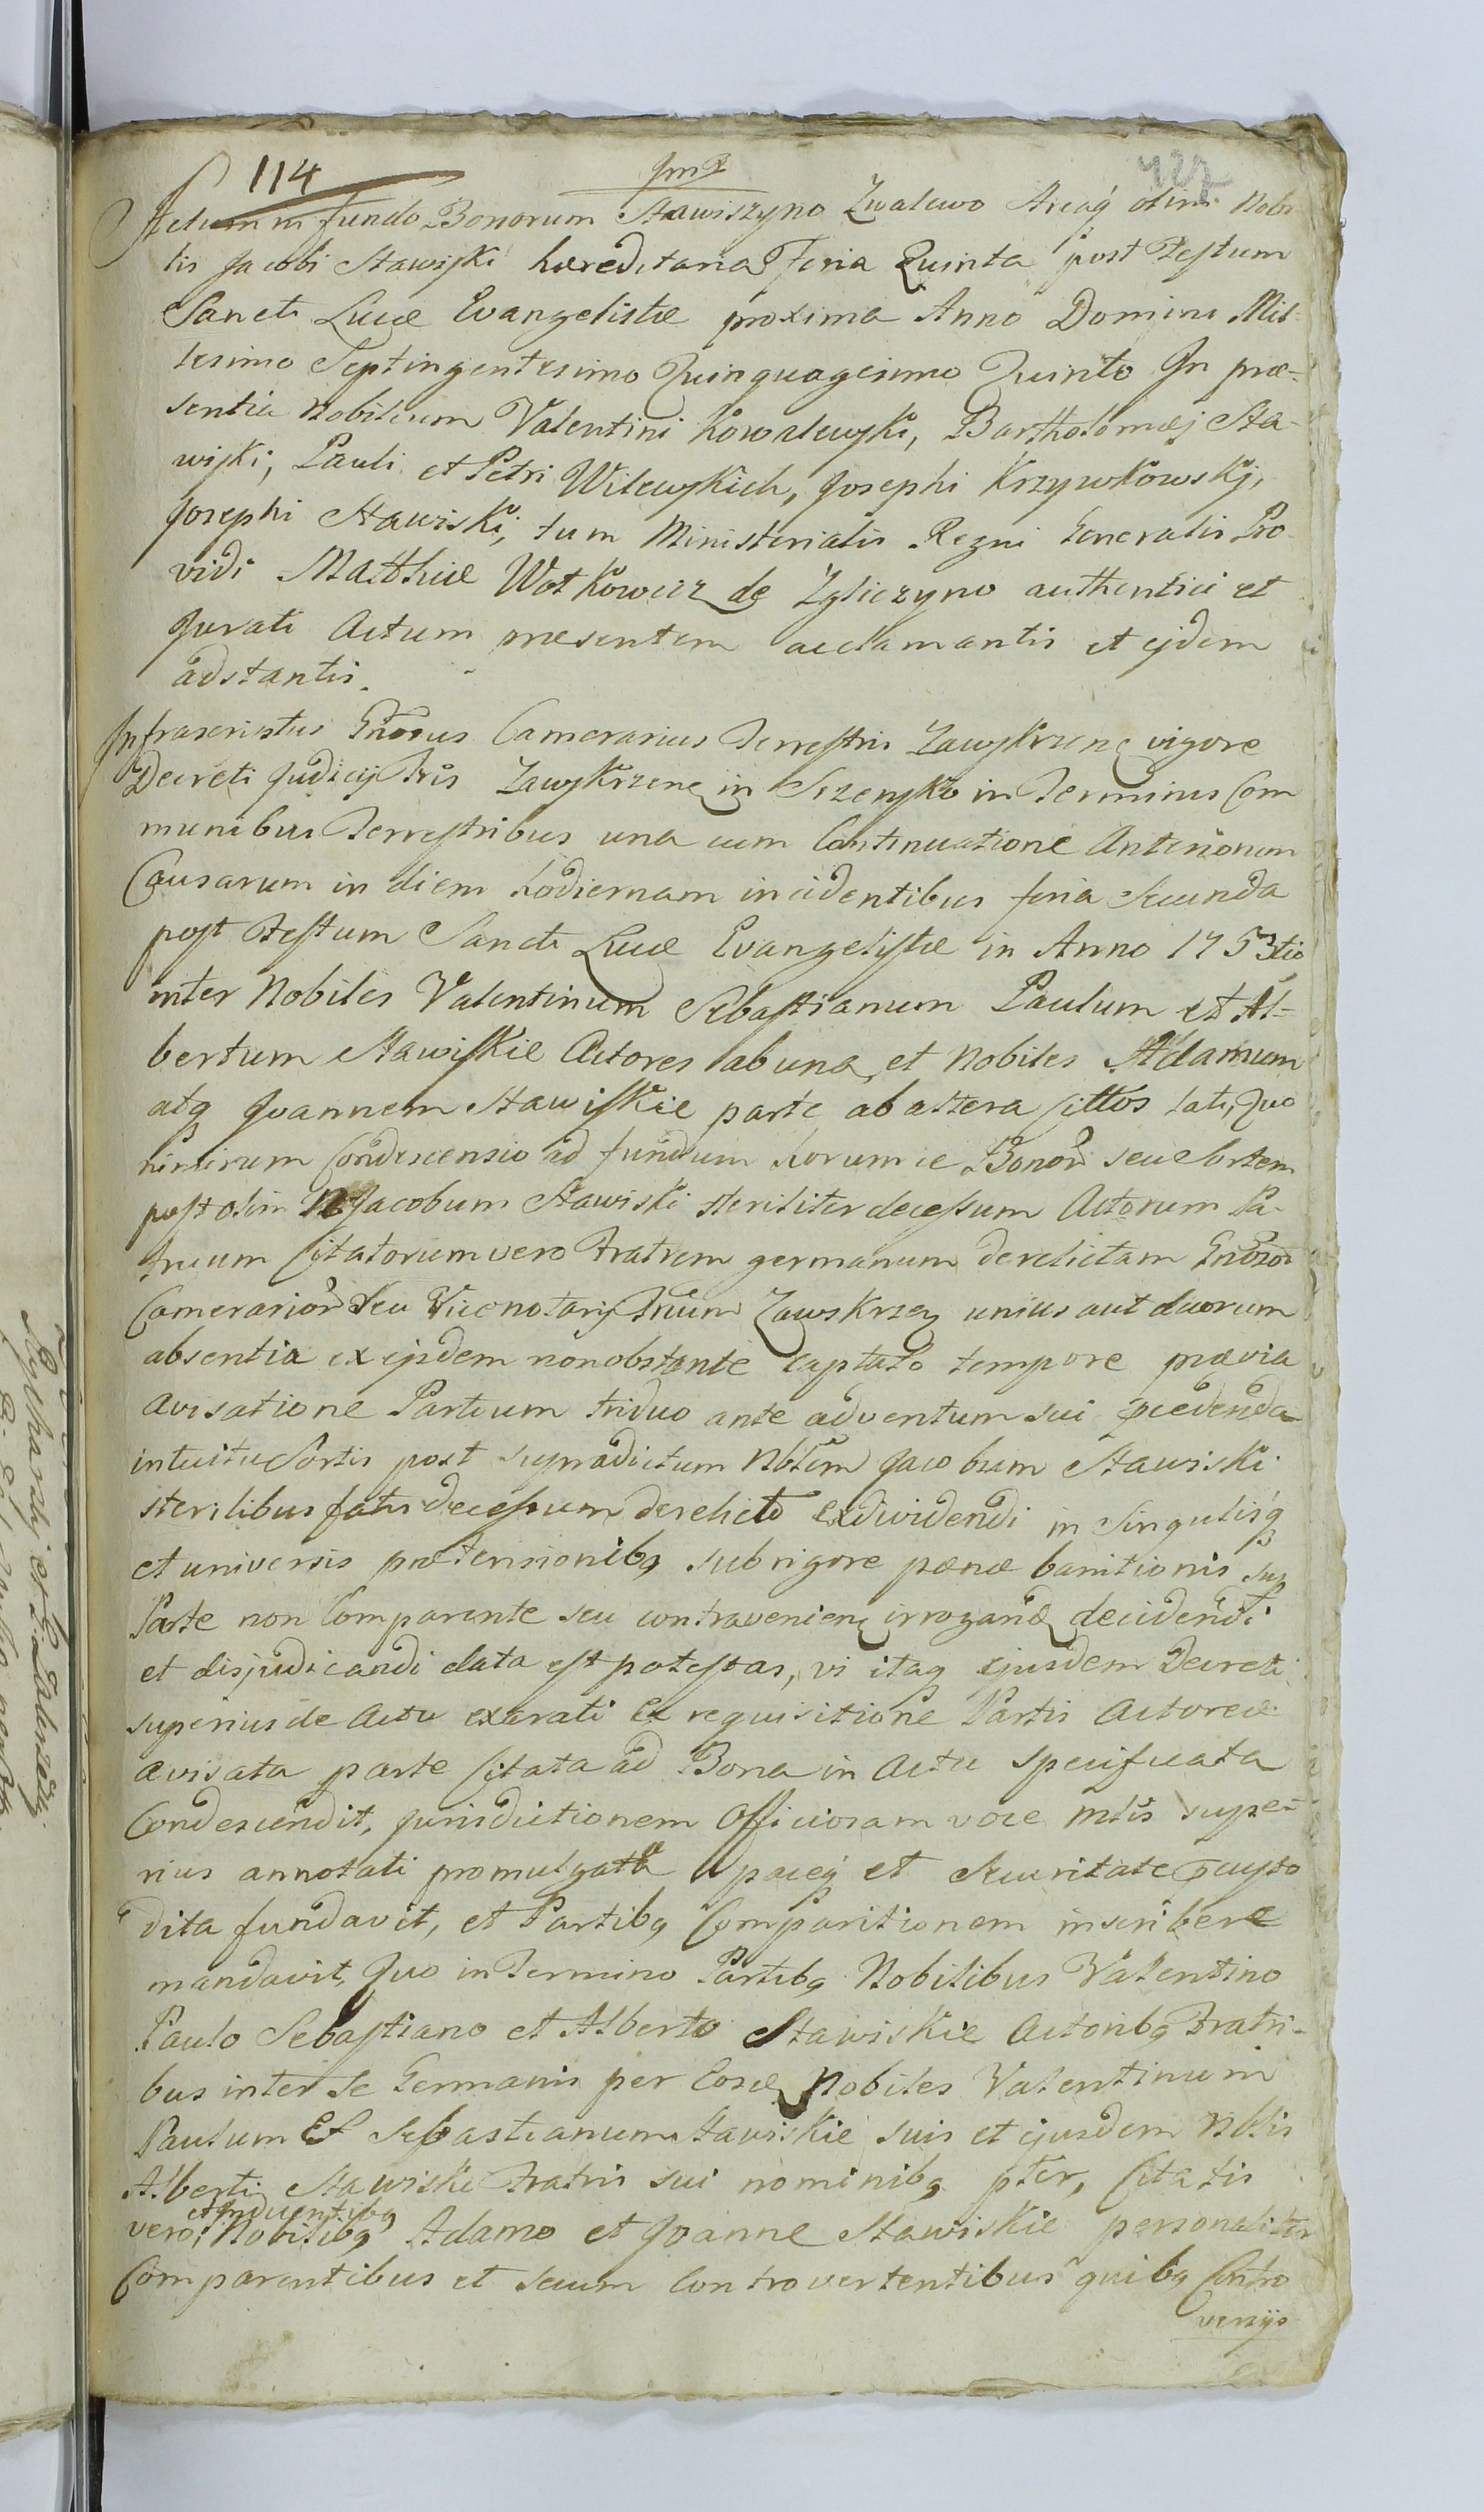 114
427
Actum in fundo Bonorum Stawiszyno Zwalewo olim Nobi
lis Jacobi Stawiski haereditaria Feria Quinta post Festum
Sancti Lucae Evangelistae proxima Anno Domini Mil-
lesimo Septingentesimo Quinquagesimo Quinto In prae-
sentia Nobilium Valentini Kowalewski, Bartholomaej Sta-
wiski, Pauli et Petri Wilewskich, Josephi Krzywkowskj,
Josephi Stawiski, tum Ministerialis Regni Generalis Pro
vidi Matthiae Wotkowicz de Zgliczyno authentici et
Jurati Actum praesentem acclamantis et ejdem
adstantis.
Infrascriptus Gnosus Camerarius Terrestris Zawskrzen vigore
Decreti Judicij Tris Zawskrzen in Szrensko in Terminis Com
munibus Terrestribus una cum Continuatione Anteriorum
Causarum in diem hodiernam incidentibus feria Secunda
post Festum Sancti Lucae Evangelistae in Anno 1753tio
inter Nobiles Valentinum Sebastianum Paulum et Al-
bertum Stawiskie Actores ab una, et Nobiles Adamum
atq Joannem Stawiskie parte ab altera Cittos lati, Quo
nimirum Condescensio ad fundum horumce Bonor seu Sortem
post olim N Jacobum Stawiski steriliter decessum Actorum Pa-
truum Citatorum vero Fratrem germanum derelictam Gnosor
Camerarior Seu Vicenotarij Trium Zawskrzen unius aut duorum
absentia ex ejsdem nonobstante captato tempore praevia
avisatione Partium triduo ante adventum sui praecedenda
intuitu Sortis post supradictum Nblem Jacobum Stawiski
sterilibus fatis decessum derelictae exdividendi in Singulisq
et universis praetensionibq sub rigore paenae banitionis sup
Parte non Comparente seu contravenien irrogand decidendi
et disjudicandi data est potestas, vi itaq ejusdem Decreti
superius de Actu exarati ex requisitione Partis Actoreae
avisata parte Citata ad Bona in Actu specificata
Condescendit, Jurisdictionem Officiosam voce Mlis supe-
rius annotati promulgatam paceq et Securitate pcusto
dita fundavit, et Partibq Comparitionem inscribere
mandavit, Quo in Termino Partibq Nobilibus Valentino
Paulo Sebastiano et Alberto Stawiskie Actoribq Fratri-
bus inter Se Germanis per Eosd Nobiles Valentinum
Paulum Et Sebastianum Stawiskie suis et ejusdem Nblis
Alberti Stawiski Fratris sui nominibq pter, Citatis
et inducentibq
vero, Nobilibq Adamo et Joanne Stawiskie personaliter
Comparentibus et secum Controvertentibus quibq Contro
versijs